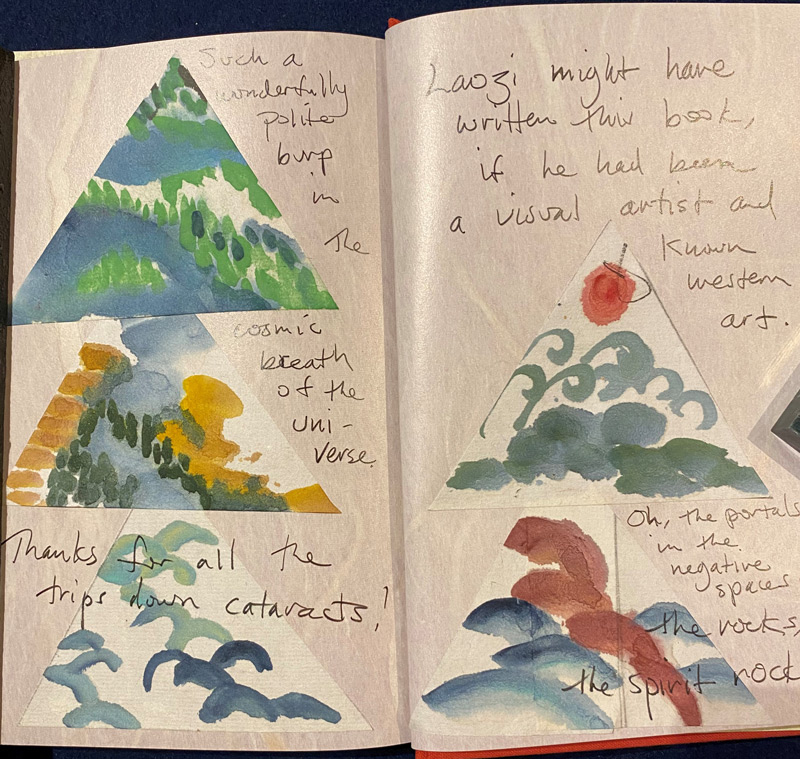 Such a
wonderfully
polite
burp
in
the
cosmic
breath
of the
uni-
verse.
Thanks for all the
trips down cataracts!
Laozi might have
written this book,
if he had been
a visual artist and
known
western
art.
Oh, the portals
in the
negative
spaces
the rocks,
the spirit rock